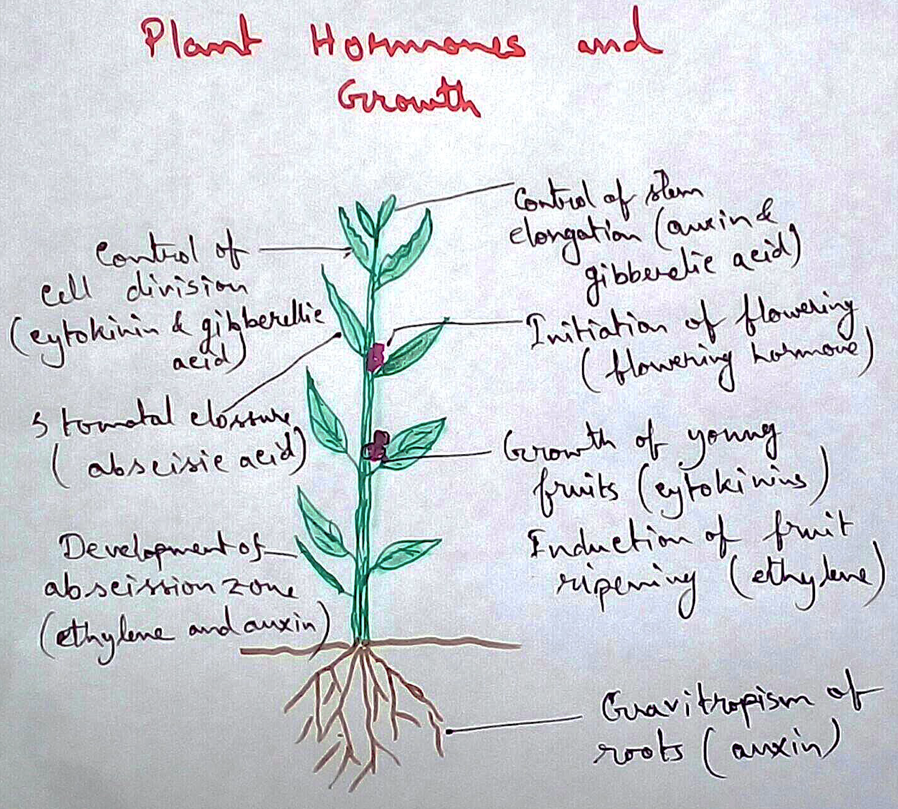 Plant Hormones and
Growth
Control of stem
elongation (auxin &
gibberelic acid)
Control of
cell division
(cytokinin & gibberellic
acid)
Initiation of flowering
(flowering hormone)
Stomatal clossure
(abscisic acid)
Growth of young
fruits (cytokinins)
Induction of fruit
ripening (ethylene)
Development of
abscission zone
(ethylene and auxin)
Gravitropism of
roots (auxin)